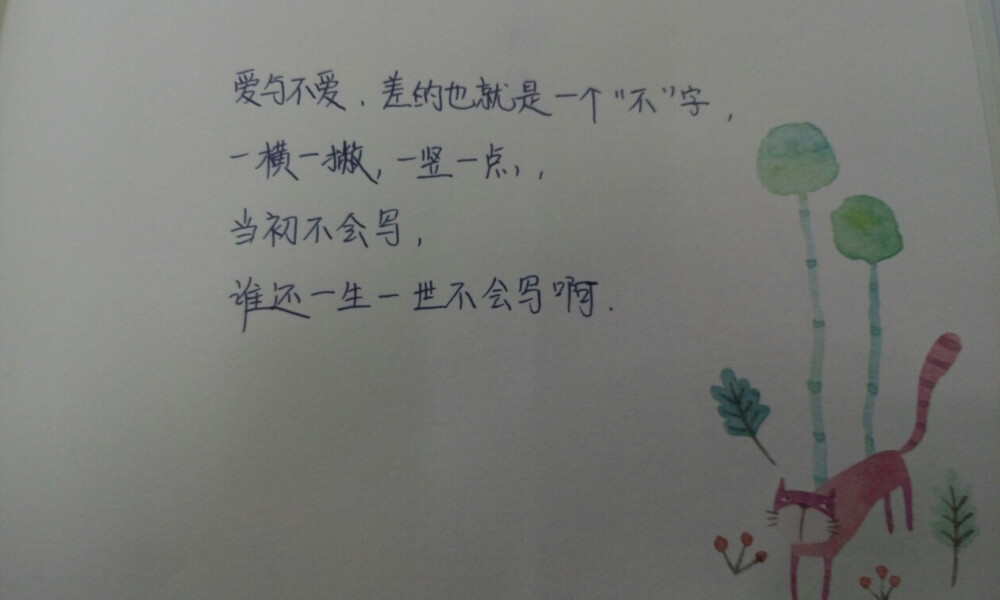 爱与不爱，差的也就是一个“不”字，
一横一撇，一竖一点，，
当初不会写，
谁还一生一世不会写啊．